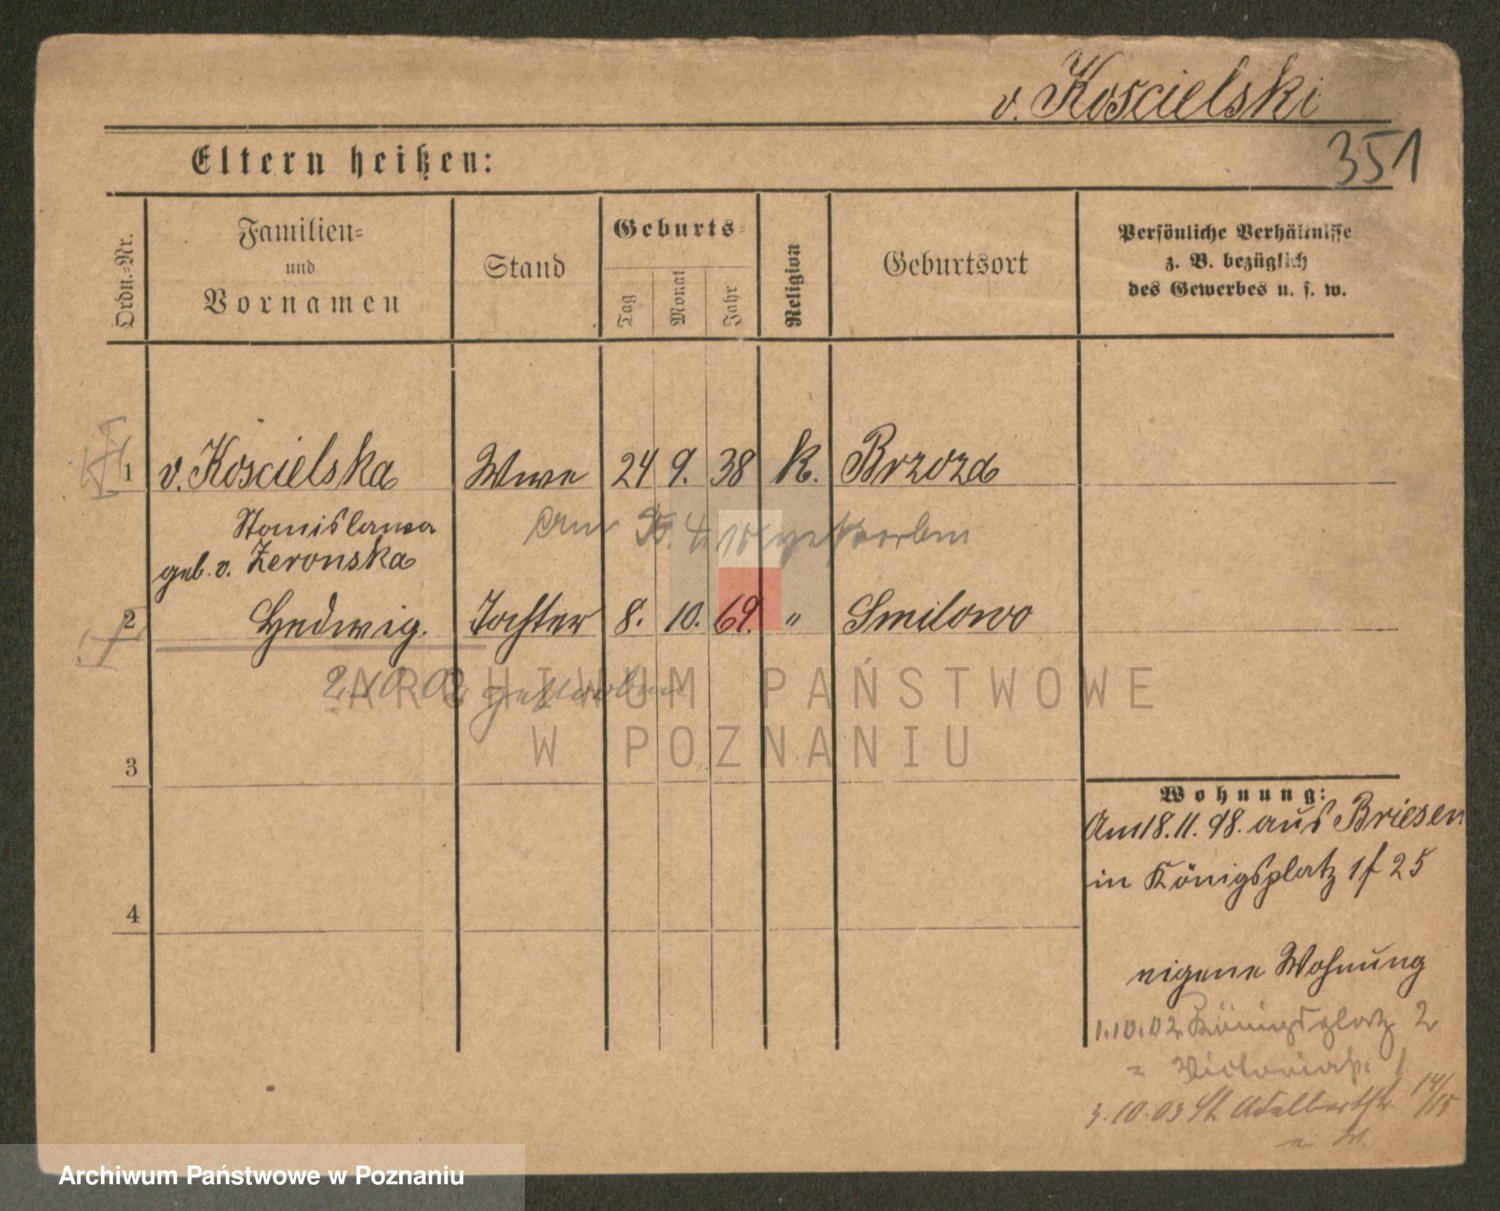 v. Koscielski
351
Eltern heißen:
Ordn.-Nr.
Familien-
und
Vornamen
Stand
Geburts-
Tag
Monat
Jahr
Religion
Geburtsort
Persönliche Verhältnisse
z. B. bezüglich
des Gewerbes u. s. w.
1 v. Koscielska Wwe 24 9. 38 k. Brzoza
Stanislawa
geb. v. Zeronska
Am 4 gestorben
2 Hedwig. Tochter 8. 10. 69. " Smilowo
2.10.02 gestorben
ARCHIWUM PAŃSTWOWE
W POZNANIU
3
4
Wohnung:
Am 18.11.98. aus Briesen
in Königsplatz 1 f 25
eigene Wohnung
1.10.02 Königsplatz 2
= Victoriastr. 1
3.10.03 St. Adalbertstr. 14/15
e. W.
Archiwum Państwowe w Poznaniu